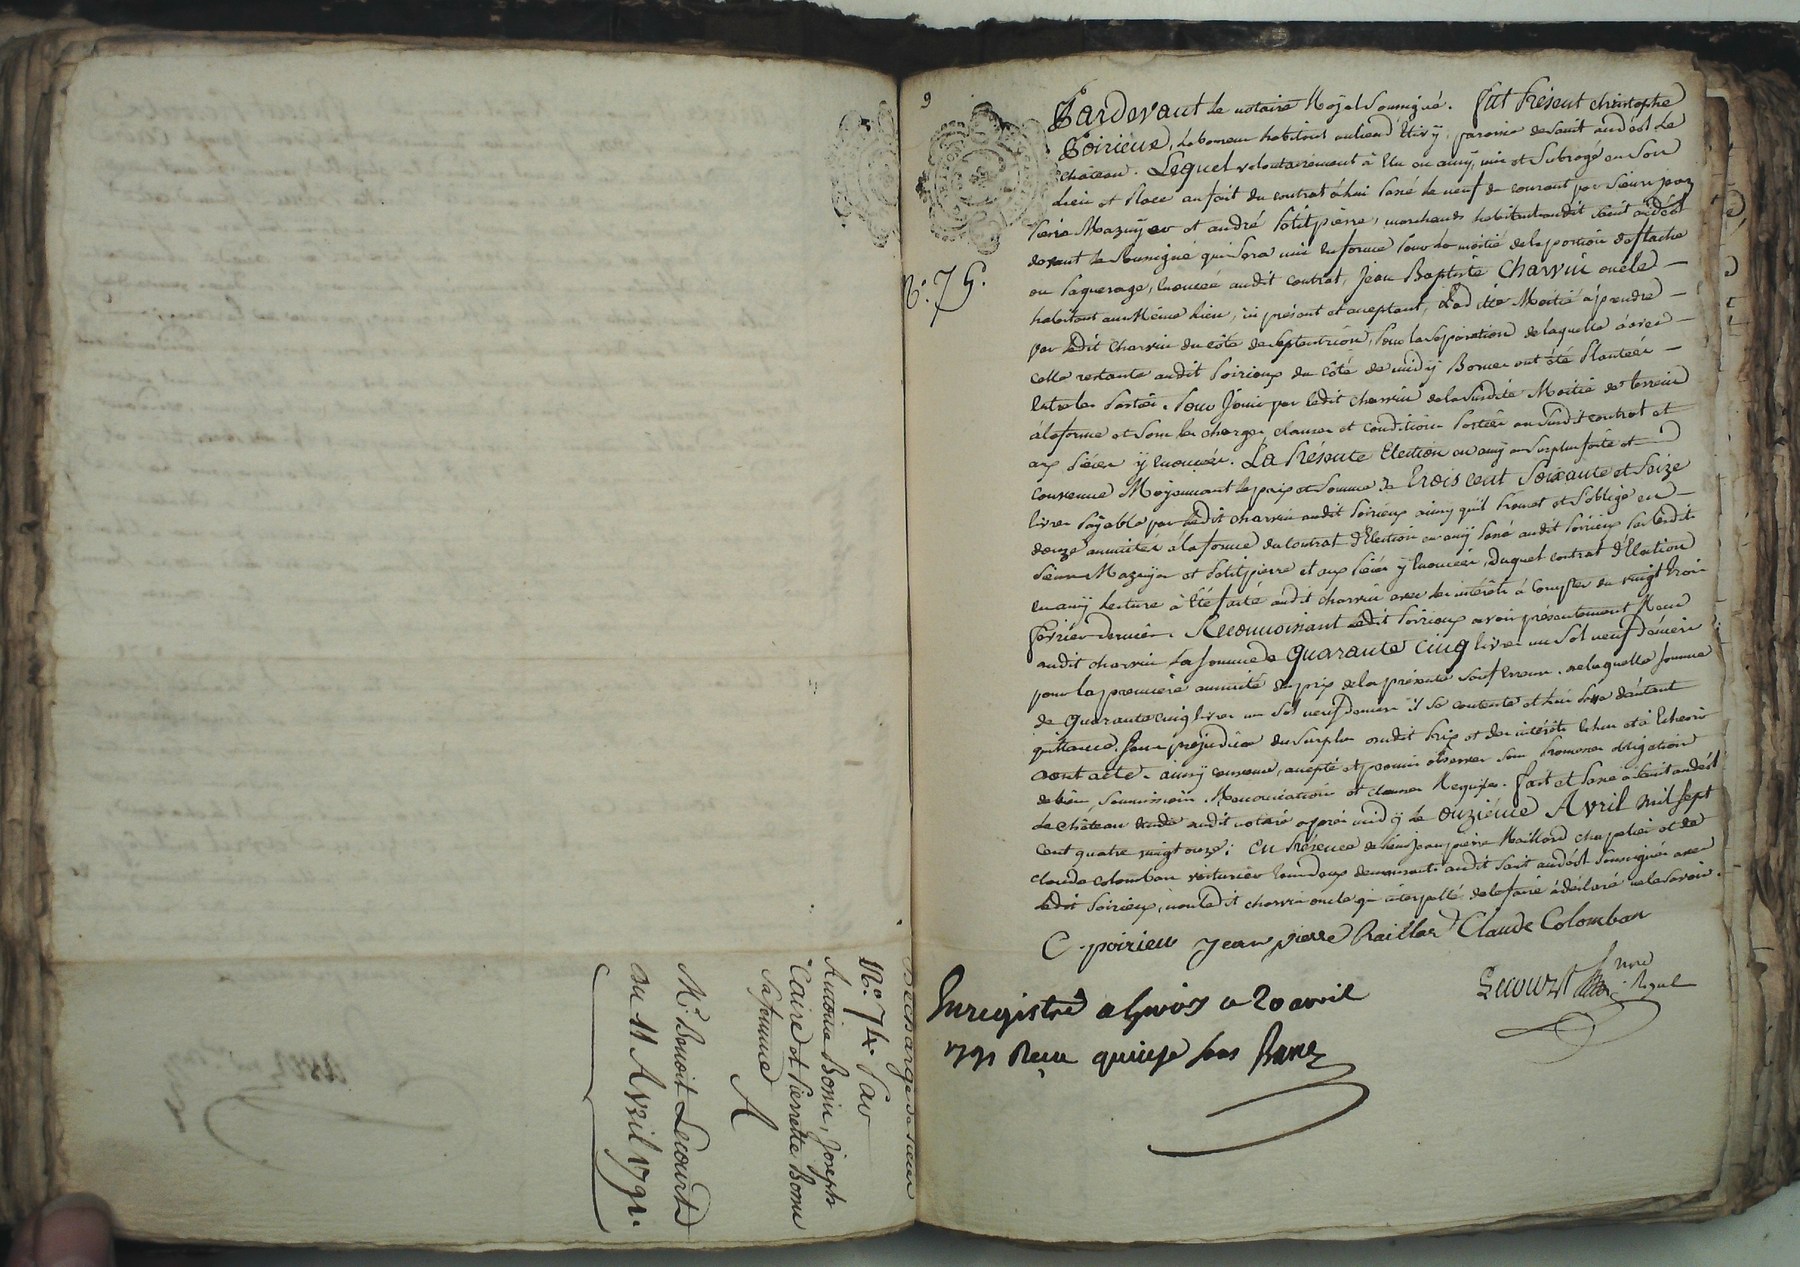 Décharge de sieur
N.° 74. Par
Antoine Bonin, Joseph
Caire et Pierrette Bonin
Sa femme
A
M.e Benoit Lecourt
Du 11 Avril 1791.
9
N.° 75.
Pardevant le notaire Royal Soussigné. fut Présent christophe
Poirieux, laboureur habitant au lieu d' paroisse de Saint andéol le
château. Lequel volontairement à Elu en amÿ, mis et Subrogé en Son
Lieu et Place au fait du contrat à lui Passé le neuf du courant par Sieurs jean
Pierre Mazuÿer et andré Petitpierre, marchands habitant audit Saint andéol
devant le Soussigné qui Sera mis En forme Pour la moitié de la portion
ou Paquerage, Enoncée audit contrat, Jean Baptiste Charvin oncle
habitant au Même lieu, ici présent et acceptant, Lad.ite Moitié à prendre
par ledit Charvin du côté de Septentrion, Pour la Séparation de laquelle d'avec
celle restante audit Poirieux du côté de midÿ Bornes ont été Plantées
Entre les Parties. Pour Jouir par ledit Charvin de la Susdite Moitié de terrein
à la forme et Sous les charges, clauses et conditions Portées au Susdit contrat et
aux Pièces ÿ Enoncées. La Présente Election en amÿ au Surplus faite et
convenue Moÿennant le prix et Somme de Trois cent Soixante et Seize
livres Paÿable par ledit charvin audit Poirieux ainsy qu'il Promet et S'oblige en
douze annuitées à la forme du contrat d'Election en amÿ Passé audit Poirieux Par lesdits
Sieurs Mazuÿer et Petitpierre et aux Pièces ÿ Enoncées, Duquel contrat d'Election
en amÿ Lecture à Eté faite audit charvin avec les intérêts à Compter du vingt Trois
février dernier. Reconnoissant ledit Poirieux avoir présentement Reçu
dudit charvin La Somme de Quarante cinq livres un Sol neuf deniers
pour la première annuité du prix de la présente Sauf Erreur. de laquelle Somme
de Quarante cinq livres un Sol neuf deniers il Se contente et lui Passe d'autant
quittance. Sans préjudice du Surplus dudit Prix et des intérêts Echus et à Echeoir
dont acte. ainsy convenu, accepté et promis observer Sous Promesses obligation
de biens, Soumissions. Renonciations et clauses Requises. fait et Passé à Saint andéol
le château Etude dudit notaire après midÿ le onzième Avril mil Sept
cent quatre vingt onze; En Présence de Sieurs Jean pierre Raillard chapelier et de
claude colomban voiturier Tous deux demeurants audit Saint andéol Soussignés avec
ledit Poirieux, non ledit charvin oncle qui interpellé de le faire à déclaré ne le Savoir.
C. poirieu Jean pierre Raillard Claude Colomban
Lecourt Nore Royal
Enregistré a Givors ce 20 avril
1791 Reçu quinze Sous